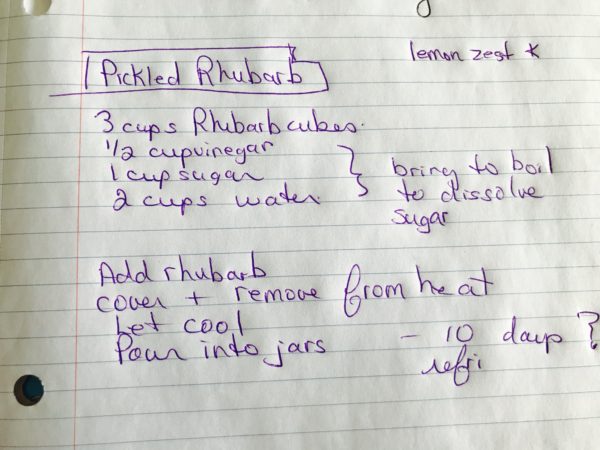 lemon zest *
Pickled Rhubarb
3 cups Rhubarb cubes.
1/2 cup vinegar
1 cup sugar
2 cups water.
bring to boil
to dissolve
sugar
Add rhubarb
cover + remove from heat
Let cool
Pour into jars
- 10 days ?
refri